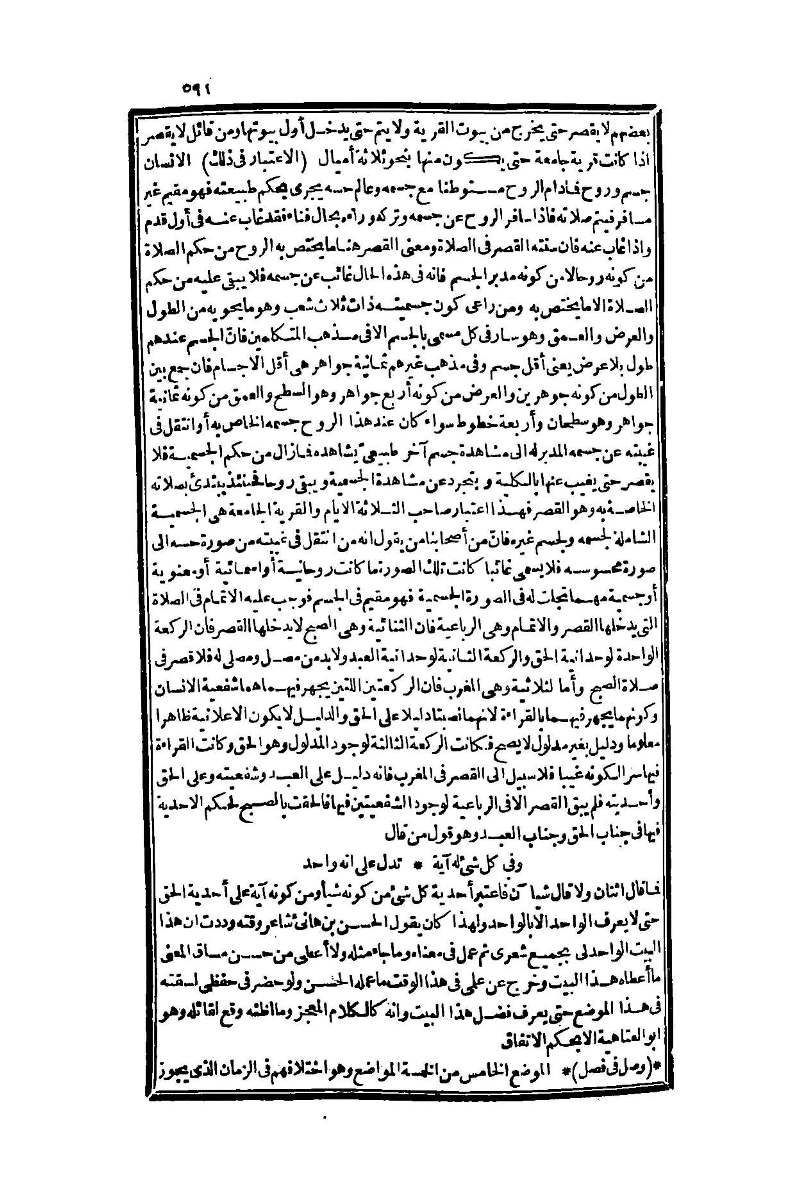 ٥٩١
بعضهم لا يقصر حتى يخرج من بيوت القرية ولا يتم حتى يدخل أول بيوتها ومن قائل لا يقصر
اذا كانت قرية جامعة حتى يكون منها بنحو ثلاثة أميال (الاعتبار فى ذلك) الانسان
جسم وروح فمادام الروح مستوطنا مع جسمه وعالم حسه يجرى بحكم طبيعته فهو مقيم غير
مسافر فيتم صلاته فاذا سافر الروح عن جسمه وتركه وراءه بحال فناء فقد غاب عنه فى أول قدم
واذا غاب عنه فان سفته القصر فى الصلاة ومعنى القصر هنا ما يختص به الروح من حكم الصلاة
من كونه روحا لا من كونه مدبر الجسم فانه فى هذه الحال غائب عن جسمه فلا يبقى عليه من حكم
الصلاة الا ما يختص به ومن راعى كون جسميته ذات ثلاث شعب وهو ما يحويه من الطول
والعرض والعمق وهو سار فى كل مسمى بالجسم الا فى مذهب المتكلمين فانّ الجسم عندهم
طول بلا عرض يعنى أقل جسم وفى مذهب غيرهم ثمانية جواهر هى أقل الاجسام فان جمع بين
الطول من كونه جوهرين والعرض من كونه أربع جواهر وهو السطح والعمق من كونه ثمانية
جواهر وهو سطحان وأربعة خطوط سواء كان عند هذا الروح جسمه الخاص به أو انتقل فى
غيبته عن جسمه المدبر له الى مشاهدة جسم آخر طبيعىّ يشاهده فمازال من حكم الجسمية فلا
يقصر حتى يغيب عنها بالكلية ويتجرد عن مشاهدة الجسمية ويبقى روحا فحينئذ يبتدئ بصلاته
الخاصة به وهو القصر فهذا اعتبار صاحب الثلاثة الايام والقرية الجامعة هى الجسمية
الشاملة لجسمه ولجسم غيره فانّ من أصحابنا من يقول انه من انتقل فى غيبته من صورة حسه الى
صورة محسوسه فلا يسمى غائبا كانت تلك الصورة ما كانت روحانية أو اسمائية أو معنوية
أو جسمية مهما تجلت له فى الصورة الجسمية فهو مقيم فى الجسم فوجب عليه الاتمام فى الصلاة
التى يدخلها القصر والاتمام وهى الرباعية فان الثنائية وهى الصبح لا يدخلها القصر فان الركعة
الواحدة لوحدانية الحق والركعة الثانية لوحدانية العبد ولا بد من مصل ومصلى له فلا قصر فى
صلاة الصبح وأما الثلاثية وهى المغرب فان الركعتين اللتين يجهر فيهما هما شفعية الانسان
وكونهما يجهر فيهما بالقراءة لانهما نصبتا دليلا على الحق والدليل لا يكون الا علانية ظاهرا
معلوما ودليل بغير مدلول لا يصح فكانت الركعة الثالثة لوجود المدلول وهو الحق وكانت القراءة
فيها سرا لكونه غيبا فلا سبيل الى القصر فى المغرب فانه دليل على العبد وشفعيته وعلى الحق
وأحديته فلم يبق القصر الا فى الرباعية لوجود الشفعيتين فيها فالحقت بالصبح لحكم الاحدية
فيها فى جناب الحق وجناب العبد وهو قول من قال
وفى كل شئ له آية * تدل على انه واحد
فما قال اثنان ولا قال شيا آن فاعتبر أحدية كل شئ من كونه شيأ ومن كونه آية على أحدية الحق
حتى لا يعرف الواحد الا بالواحد ولهذا كان يقول الحسن بن هانئ شاعر وقته وددت ان هذا
البيت الواحد لى بجميع شعرى ثم عمل فى معناه وما جاء مثله ولا أعطى من حسن مساق المعنى
ما أعطاه هذا البيت وخرج عن على فى هذا الوقت ما عمله الحسن ولو حضر فى حفظى لسقته
فى هذا الموضع حتى يعرف فضل هذا البيت وانه كالكلام المعجز وما اظنه وقع لقائله وهو
ابو العتاهية الا بحكم الاتفاق
*(وصل فى فصل)* الموضع الخامس من الخمسة المواضع وهو اختلافهم فى الزمان الذى يجوز